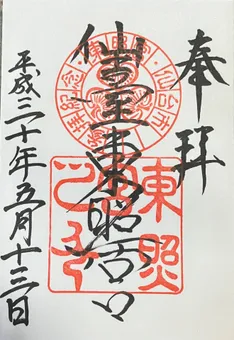 奉拝
仙臺東照宮
平成三十年五月十三日
東照